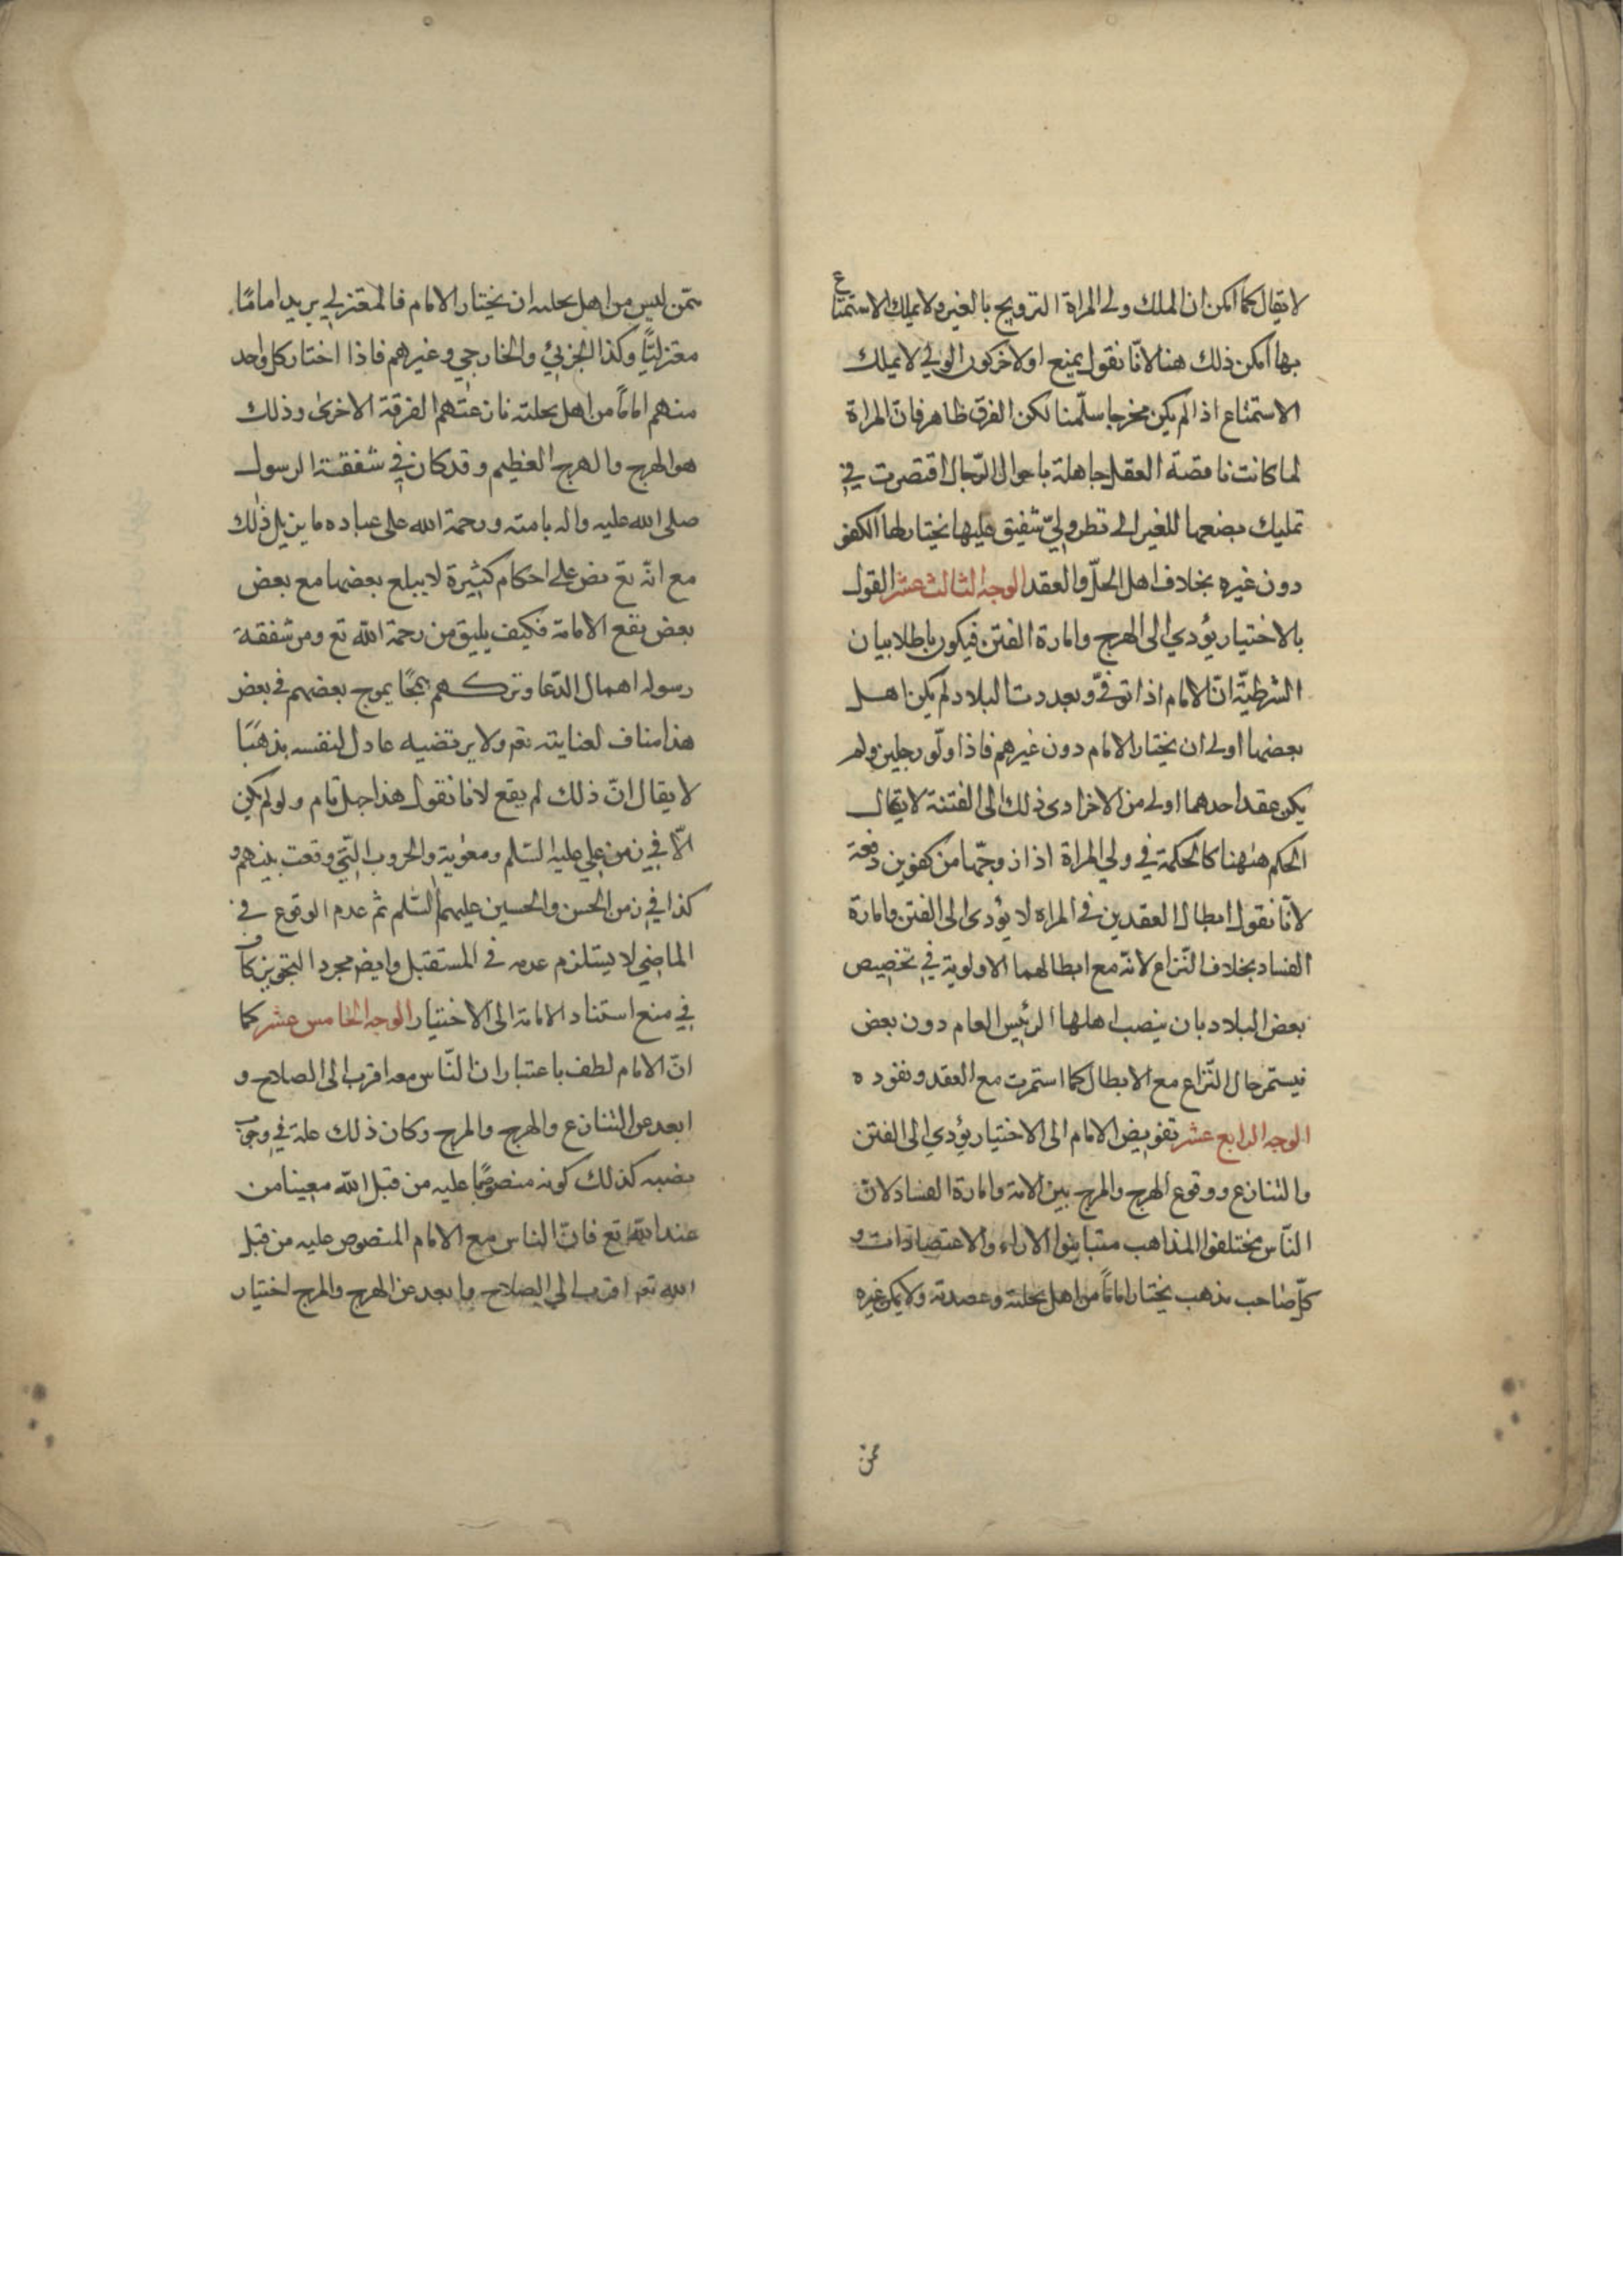 لا يقال كما امكن ان الملك ولى المراة التزويج بالغير ولا يملك الاستمتاع
بها امكن ذلك هنا لانا نقول يمنع اولا كون الولى لا يملك
الاستمتاع اذا لم يكن محرما سلّمنا لكن الفرق ظاهر فان المراة
لما كانت ناقصة العقل جاهلة باحوال الرّجال اقتصرت في
تمليك بضعها للغير الى نظر وليّ شفيق عليها يختار لها الكفو
دون غيره بخلاف اهل الحلّ والعقد الوجه الثالث عشر القول
بالاختيار يؤدي الى الهرج واثارة الفتن فيكون باطلا بيان
الشرطيّة انّ الامام اذا توفّى وتعددت البلاد لم يكن اهل
بعضها اولى ان يختار الامام دون غيرهم فاذا ولّو رجلين ولم
يكن عقد احدهما اولى من الاخر ادى ذلك الى الفتنة لا يقال
الحكم ههنا كالحكمة في ولي المراة اذا زوجها من كفوين دفعة
لانّا نقول ابطال العقدين في المراه لا يؤدى الى الفتن واثارة
الفساد بخلاف النّزاع لانّه مع ابطالهما الاولوية في تخصيص
بعض البلاد بان ينصب اهلها الرئيس العام دون بعض
فيستمر حال النّزاع مع الابطال كما استمرت مع العقد ونفوده
الوجه الرابع عشر تفويض الامام الى الاختيار يؤدي الى الفتن
والتنازع ووقوع الهرج والمرج بين الامة واثارة الفساد لانّ
النّاس مختلفوا المذاهب متباينوا الاراء والاعتقادات و
كلّ صاحب مذهب يختار اماماً من اهل نحلته وعقيدته ولا يمكن غيره
ممن
ممّن ليس من اهل نحلته ان يختار الامام فالمعتزلي يريد اماما
معتزليّاً وكذا الجبرئي والخارجي وغيرهم فاذا اختار كل واحد
منهم اماماً من اهل نحلته نازعتهم الفرقة الاخرى وذلك
هو الهرج والمرج العظيم وقد كان في شفقة الرسول
صلى الله عليه واله بامته ورحمة الله على عباده ما يزيل ذلك
مع انّه تع نص على احكام كثيرة لا يبلغ بعضها مع بعض
بعض نفع الامامة فكيف يليق من رحمة الله تع ومن شفقة
رسوله اهمال الدّعا وتركهم يموج بعضهم في بعض
هذا مناف لعنايته تع ولا يرتضيه عاقل لنفسه مذهبًا
لا يقال انّ ذلك لم يقع لانا نقول هذا جهل تام ولو لم يكن
الّا في زمن علي عليه السّلم ومعوية والحروب الّتي وقعت بينهم و
كذا في زمن الحسن والحسين عليهما السّلم ثم عدم الوقوع في
الماضي لا يستلزم عدمه في المستقبل وايض مجرد التجويز كاف
في منع استناد الامامة الى الاختيار الوجه الخامس عشر كما
انّ الامام لطف باعتبار ان النّاس معه اقرب الى الصلاح و
ابعد عن التنازع والهرج والمرج وكان ذلك علة في وجوب
نصبه كذلك كونه منصوصًا عليه من قبل الله معينا من
عند الله تع فانّ الناس مع الامام المنصوص عليه من قبل
الله تع اقرب الى الصلاح وابعد عن الهرج والمرج اختيار